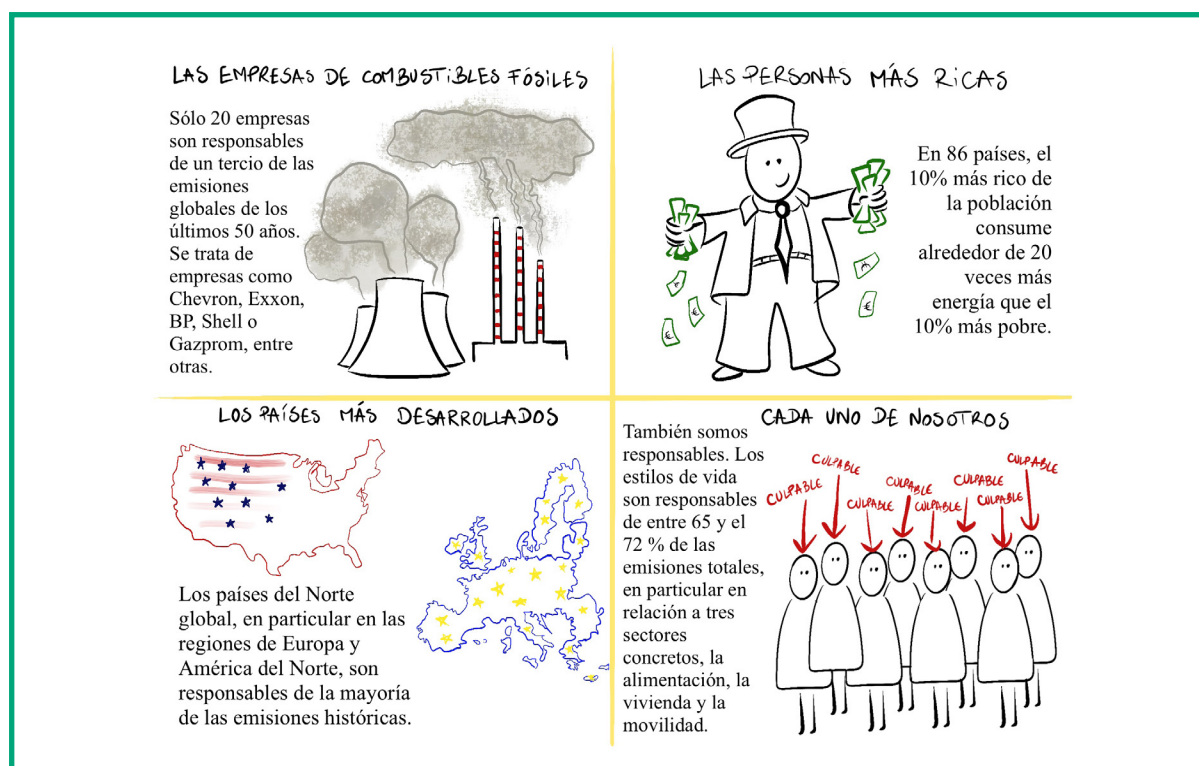 LAS EMPRESAS DE COMBUSTIBLES FÓSILES
Sólo 20 empresas
son responsables
de un tercio de las
emisiones
globales de los
últimos 50 años.
Se trata de
empresas como
Chevron, Exxon,
BP, Shell o
Gazprom, entre
otras.
LAS PERSONAS MÁS RICAS
En 86 países, el
10% más rico de
la población
consume
alrededor de 20
veces más
energía que el
10% más pobre.
€
€
€
€
LOS PAÍSES MÁS DESARROLLADOS
Los países del Norte
global, en particular en las
regiones de Europa y
América del Norte, son
responsables de la mayoría
de las emisiones históricas.
CADA UNO DE NOSOTROS
También somos
responsables. Los
estilos de vida
son responsables
de entre 65 y el
72 % de las
emisiones totales,
en particular en
relación a tres
sectores
concretos, la
alimentación, la
vivienda y la
movilidad.
CULPABLE
CULPABLE
CULPABLE
CULPABLE
CULPABLE
CULPABLE
CULPABLE
CULPABLE